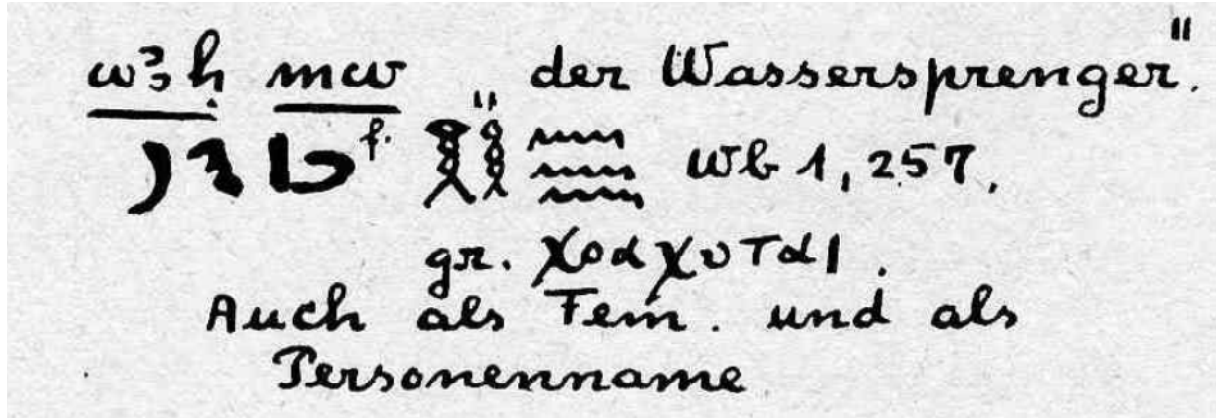 wꜣḥ mw „der Wassersprenger“.
f. 𓎝𓎛𓈗 Wb 1, 257,
gr. χοαχυται.
Auch als Fem. und als
Personenname